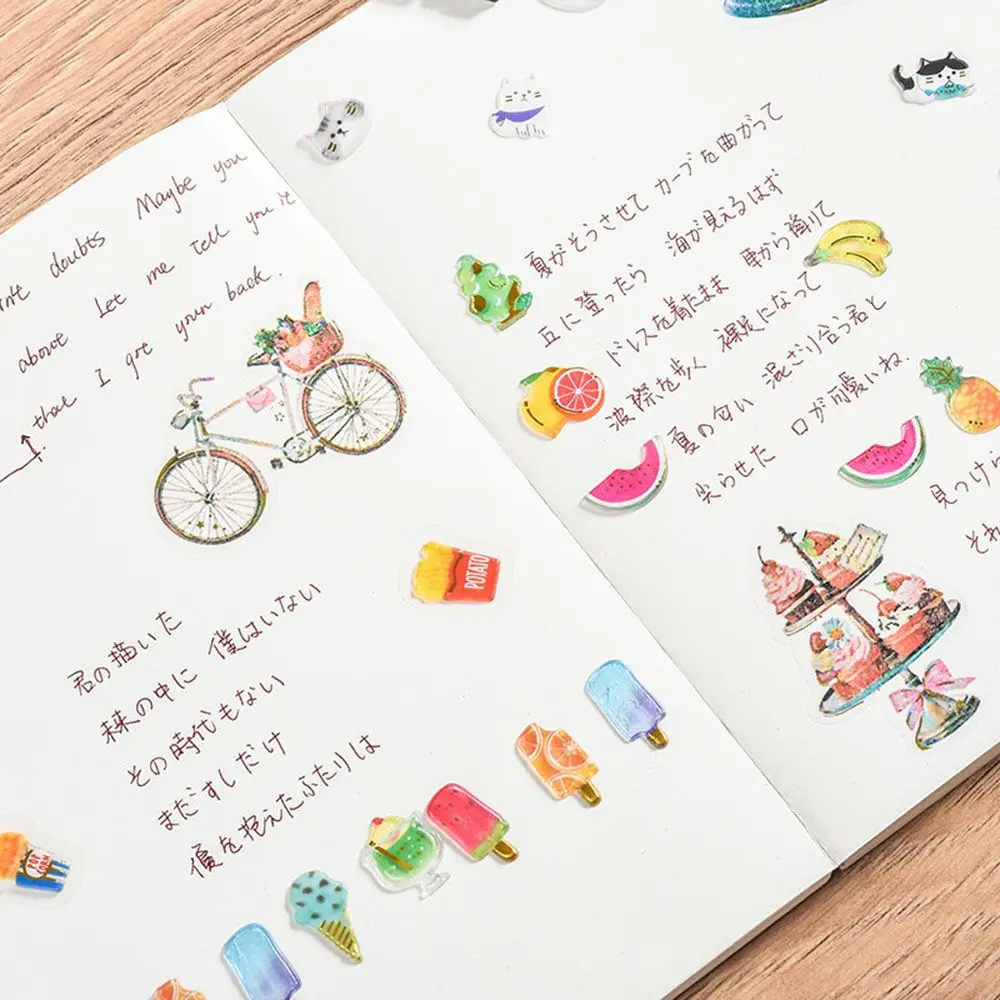 Maybe you
doubts
Let me tell you it
above
I got your back.
that
君の描いた
未来の中に 僕はいない
その時代もない
まだすしだけ
優を抱えたふたりは
POTATO
POP CORN
夏がそうさせて カーブを曲がって
丘に登ったら 海が見えるはず
ドレスを着たまま 車から降りて
波際を歩く 裸足になって
夏の匂い 混ざり合う君と
尖らせた 口が可愛いね.
見つけ
それ